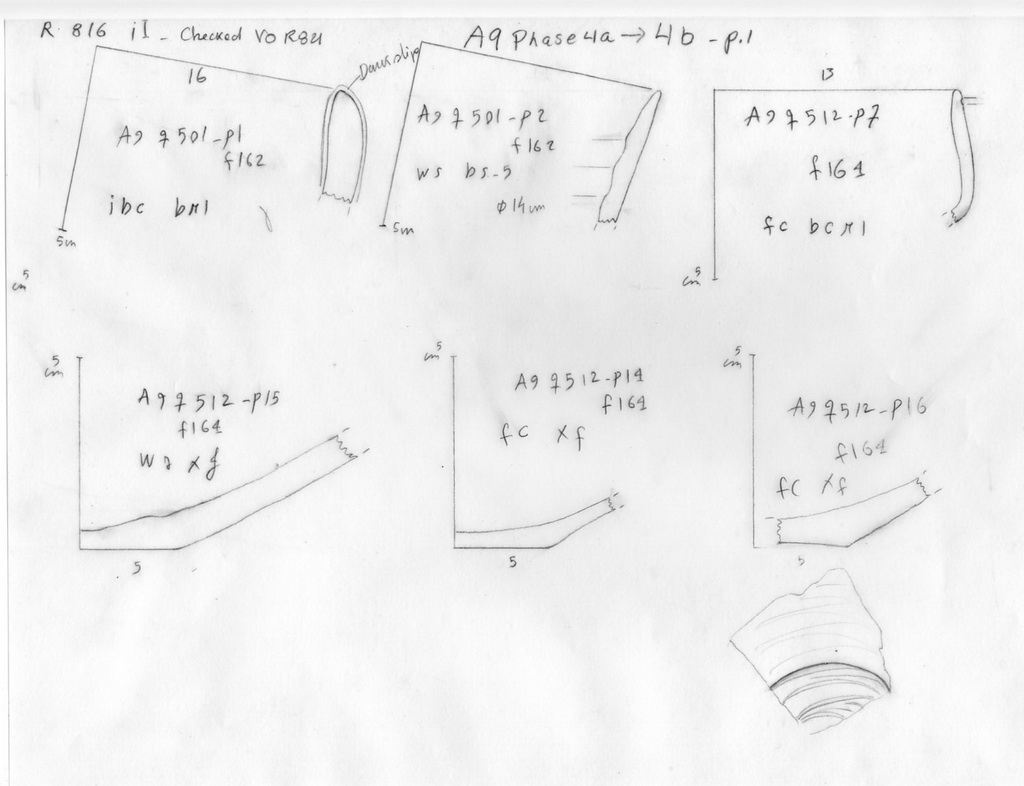 R. 816 iI - Checked VO R821
A9 Phase 4a → 4b - p.1
Dark slip
16
A9 q 501-p1
f162
ibc br1
5cm
A9 q 501-p2
f162
ws bs-5
ø14cm
5cm
13
A9 q 512-p7
f164
fc bcr1
5
cm
5
cm
5
cm
A9 q 512-p15
f164
ws xf
5
5
cm
A9 q 512-p14
f164
fc xf
5
5
cm
A9 q 512-p16
f164
fc xf
5